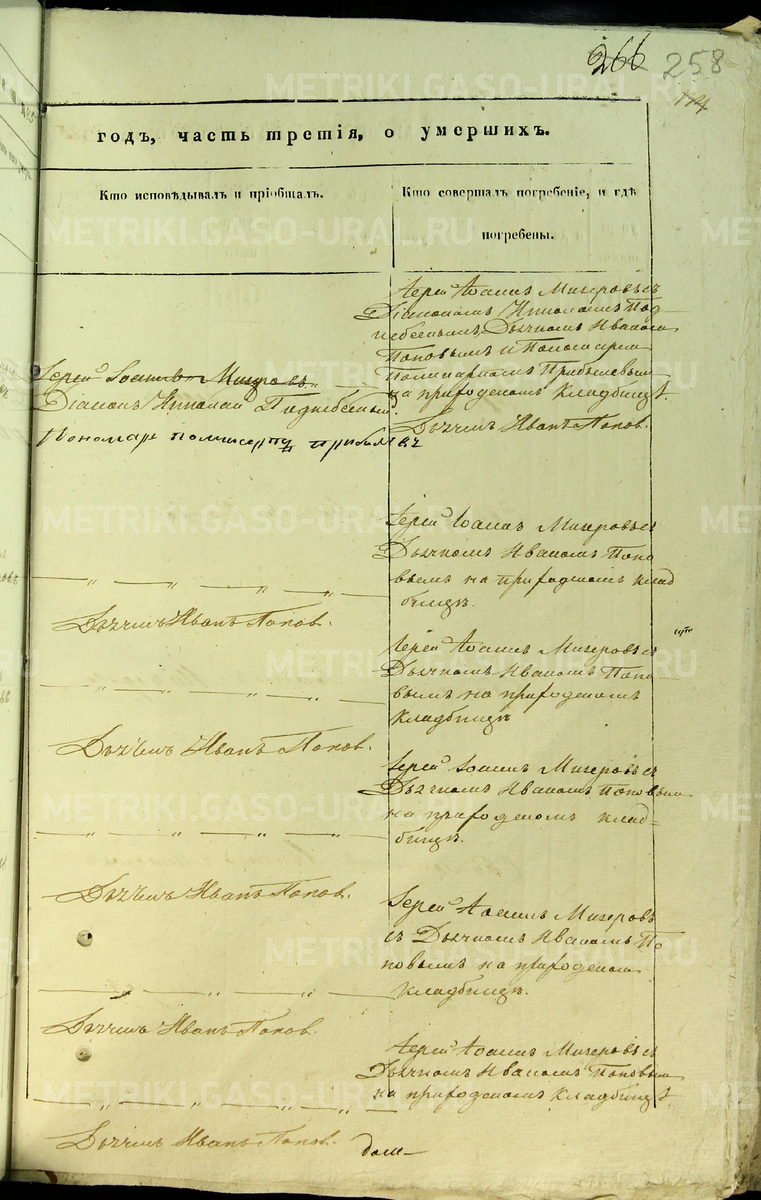 266 258
174
годъ, часть третія, о умершихъ.
Кто исповѣдывалъ и пріобщалъ.
Кто совершалъ погребеніе, и гдѣ
погребены.
Іерей Іоаннъ Мизеровъ съ
Діакономъ Николаемъ Под
небеснымъ, Дьячкомъ Иваномъ
Поповымъ и Пономаремъ
Поликарпомъ Прибылевымъ
на приходскомъ кладбищѣ.
Дьячекъ Иванъ Поповъ.
Іерей Іоаннъ Мизеровъ
Діаконъ Николай Поднебесный
Пономарь Поликарпъ Прибылевъ
Іерей Іоаннъ Мизеровъ съ
Дьячкомъ Иваномъ Попо
вымъ на приходскомъ клад
бищѣ.
Дьячекъ Иванъ Поповъ.
Іерей Іоаннъ Мизеровъ съ
Дьячкомъ Иваномъ Попо
вымъ на приходскомъ
кладбищѣ
Дьячекъ Иванъ Поповъ.
Іерей Іоаннъ Мизеровъ съ
Дьячкомъ Иваномъ Поповымъ
на приходскомъ клад=
бищѣ.
Дьячекъ Иванъ Поповъ.
Іерей Іоаннъ Мизеровъ
съ Дьячкомъ Иваномъ По
повымъ на приходскомъ
кладбищѣ.
Дьячекъ Иванъ Поповъ.
Іерей Іоаннъ Мизеровъ съ
Дьячкомъ Иваномъ Поповымъ
на приходскомъ кладбищѣ.
Дьячекъ Иванъ Поповъ.
METRIKI.GASO-URAL.RU